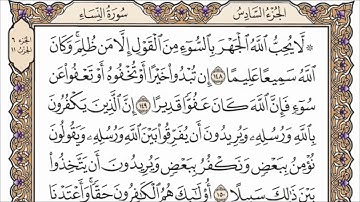 الجزء السادس
سورة النساء
۞ لَّا يُحِبُّ ٱللَّهُ ٱلْجَهْرَ بِٱلسُّوٓءِ مِنَ ٱلْقَوْلِ إِلَّا مَن ظُلِمَ ۚ وَكَانَ
ٱللَّهُ سَمِيعًا عَلِيمًا ١٤٨ إِن تُبْدُوا۟ خَيْرًا أَوْ تُخْفُوهُ أَوْ تَعْفُوا۟ عَن
سُوٓءٍ فَإِنَّ ٱللَّهَ كَانَ عَفُوًّا قَدِيرًا ١٤٩ إِنَّ ٱلَّذِينَ يَكْفُرُونَ
بِٱللَّهِ وَرُسُلِهِۦ وَيُرِيدُونَ أَن يُفَرِّقُوا۟ بَيْنَ ٱللَّهِ وَرُسُلِهِۦ وَيَقُولُونَ
نُؤْمِنُ بِبَعْضٍ وَنَكْفُرُ بِبَعْضٍ وَيُرِيدُونَ أَن يَتَّخِذُوا۟
بَيْنَ ذَٰلِكَ سَبِيلًا ١٥٠ أُو۟لَـٰٓئِكَ هُمُ ٱلْكَـٰفِرُونَ حَقًّا ۚ وَأَعْتَدْنَا